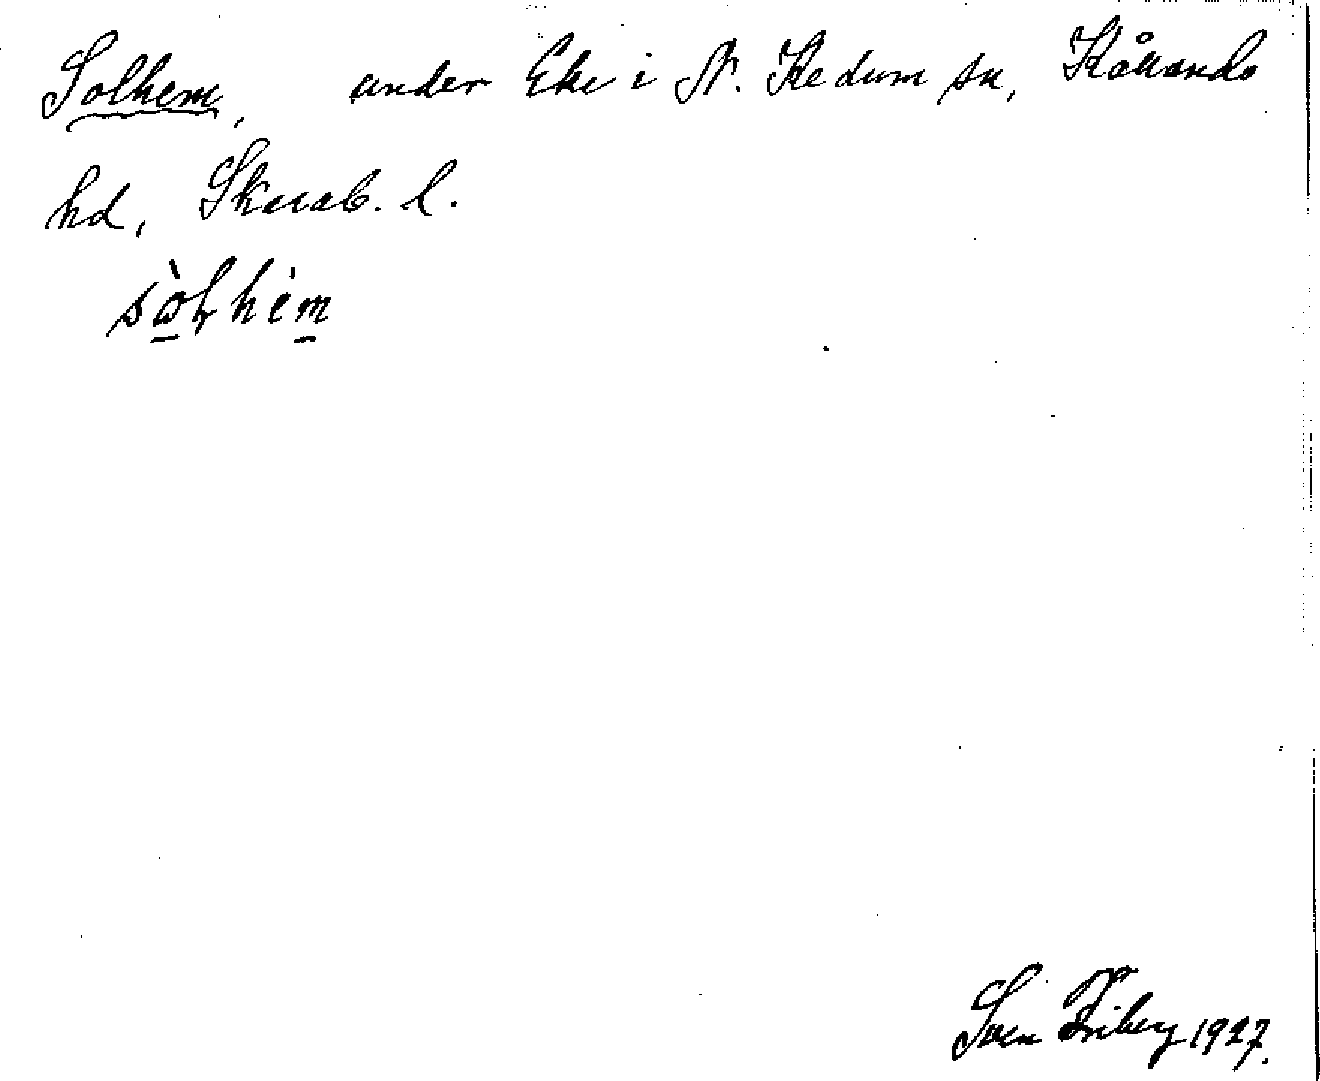 Solhem, under Eke i N. Kedum sn, Kållands
hd, Skarab. l.
sòlhèm
Sven Friberg 1927.